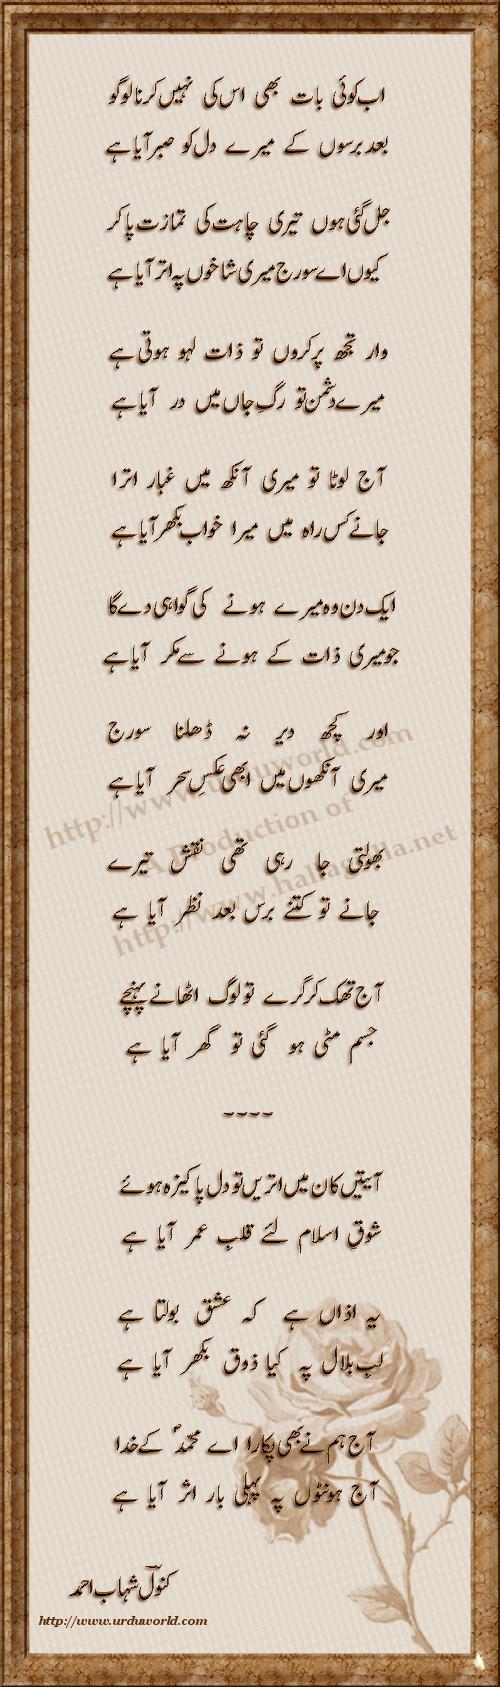 اب کوئی بات بھی اس کی نہیں کرنا لوگو
بعد برسوں کے میرے دل کو صبر آیا ہے
جل گئی ہوں تیری چاہت کی تمازت پا کر
کیوں اے سورج میری شاخوں پہ اتر آیا ہے
وار تجھ پر کروں تو ذات لہو ہوتی ہے
میرے دشمن تو رگِ جاں میں در آیا ہے
آج لوٹا تو میری آنکھ میں غبار اترا
جانے کس راہ میں میرا خواب بکھر آیا ہے
ایک دن وہ میرے ہونے کی گواہی دے گا
جو میری ذات کے ہونے سے مکر آیا ہے
اور کچھ دیر نہ ڈھلنا سورج
میری آنکھوں میں ابھی عکسِ سحر آیا ہے
http://www.urduworld.com
A Production of
http://www.hallagulla.net
بھولتی جا رہی تھی نقش تیرے
جانے تو کتنے برس بعد نظر آیا ہے
آج تھک کر گرے تو لوگ اٹھانے پہنچے
جسم مٹی ہو گئی تو گھر آیا ہے
----
آیتیں کان میں اتریں تو دل پاکیزہ ہوئے
شوقِ اسلام لئے قلبِ عمر آیا ہے
یہ اذاں ہے کہ عشق بولتا ہے
لبِ بلال پہ کیا ذوق بکھر آیا ہے
آج ہم نے بھی پکارا اے محمدؐ کے خدا
آج ہونٹوں پہ پہلی بار اثر آیا ہے
کنولؔ شہاب احمد
http://www.urduworld.com